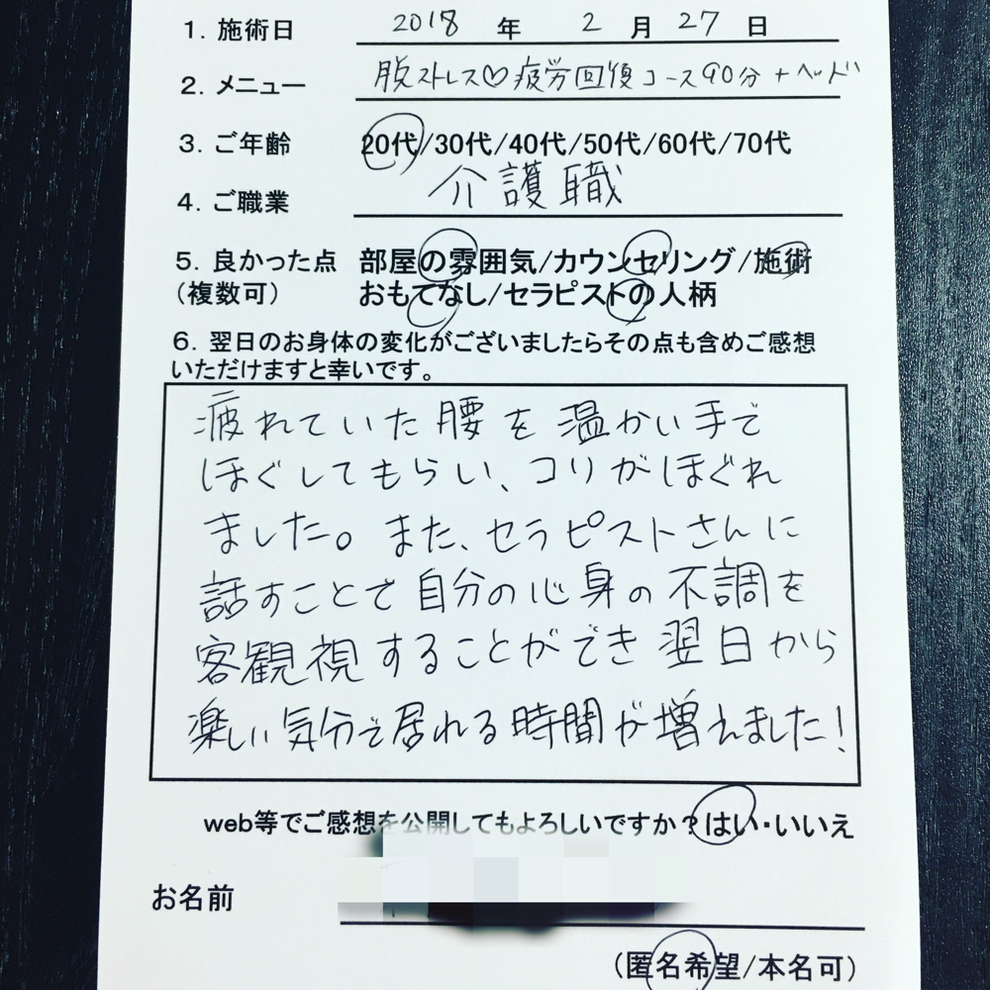 1. 施術日 2018 年 2 月 27 日
2. メニュー 脱ストレス♡疲労回復コース90分+ヘッド
3. ご年齢 20代/30代/40代/50代/60代/70代
4. ご職業 介護職
5. 良かった点 部屋の雰囲気/カウンセリング/施術
(複数可) おもてなし/セラピストの人柄
6. 翌日のお身体の変化がございましたらその点も含めご感想
いただけますと幸いです。
疲れていた腰を温かい手で
ほぐしてもらい、コリがほぐれ
ました。また、セラピストさんに
話すことで自分の心身の不調を
客観視することができ翌日から
楽しい気分で居れる時間が増えました!
web等でご感想を公開してもよろしいですか?はい・いいえ
お名前
(匿名希望/本名可)